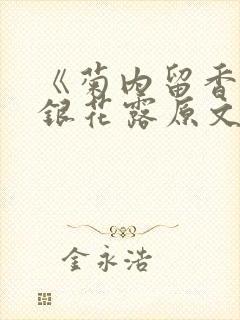 《菊内留香
银花露原文
金永浩